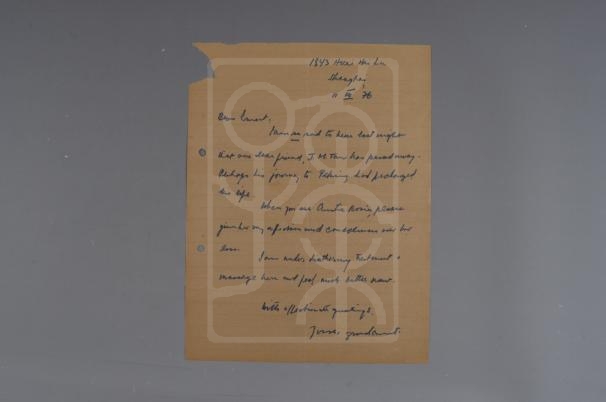 1843 Huai Hai Lu
Shanghai
11 IV 76
Dear Ernest,
I am so sad to hear last night
that our dear friend, J. M. Tan has passed away.
Perhaps his journey to Peking had prolonged
his life.
When you see Auntie Rosie, please
give her my affection and condolences over her
loss.
I am under diathermy treatment &
massage here and feel much better now.
With affectionate greetings,
Yours,